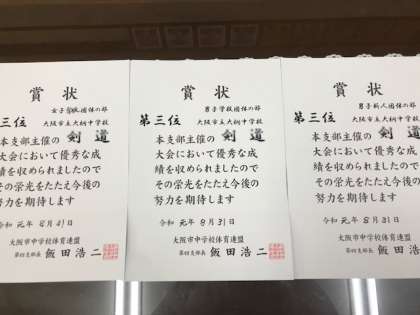 賞状
女子学級団体の部
第三位 大阪市立大桐中学校
本支部主催の 剣道
大会において優秀な成
績を収められましたので
その栄光をたたえ今後の
努力を期待します
令和 元年 8月31日
大阪市中学校体育連盟
第四支部長 飯田浩二
賞状
男子学級団体の部
第三位 大阪市立大桐中学校
本支部主催の 剣道
大会において優秀な成
績を収められましたので
その栄光をたたえ今後の
努力を期待します
令和 元年 8月31日
大阪市中学校体育連盟
第四支部長 飯田浩二
賞状
男子新人団体の部
第三位 大阪市立大桐中学校
本支部主催の 剣道
大会において優秀な成
績を収められましたので
その栄光をたたえ今後の
努力を期待します
令和 元年 8月31日
大阪市中学校体育連盟
第四支部長 飯田浩